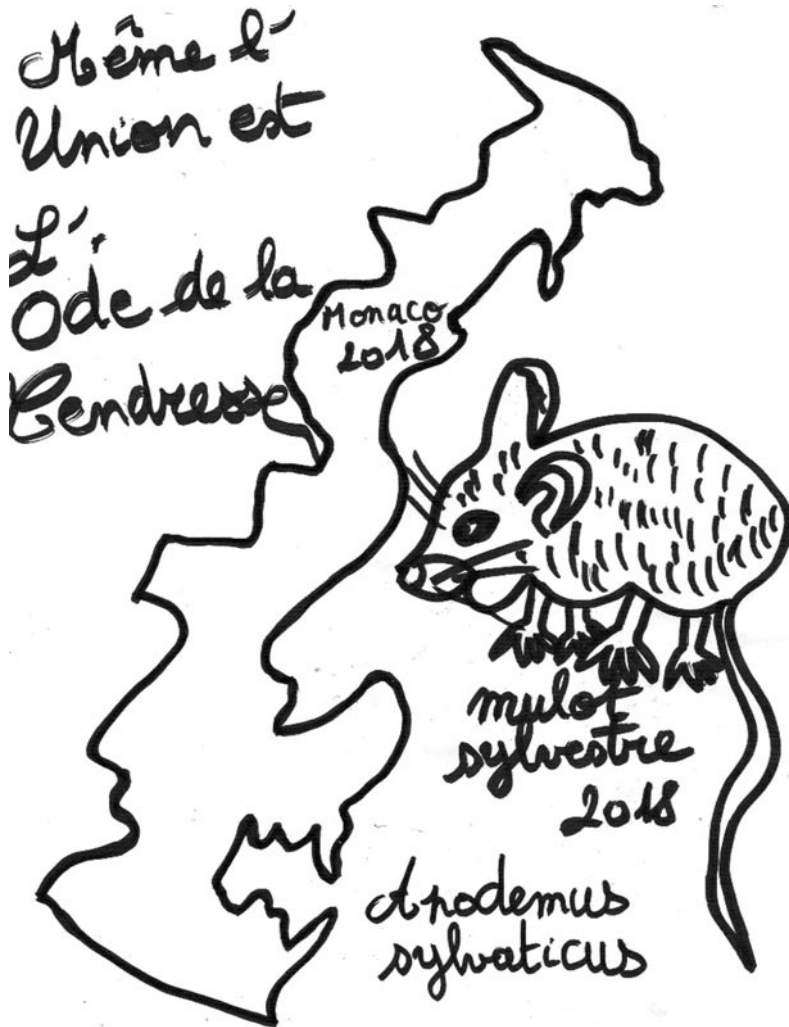 Même l'
Union est
L'
Ode de la
Tendresse
Monaco
2018
mulot
sylvestre
2018
Apodemus
sylvaticus